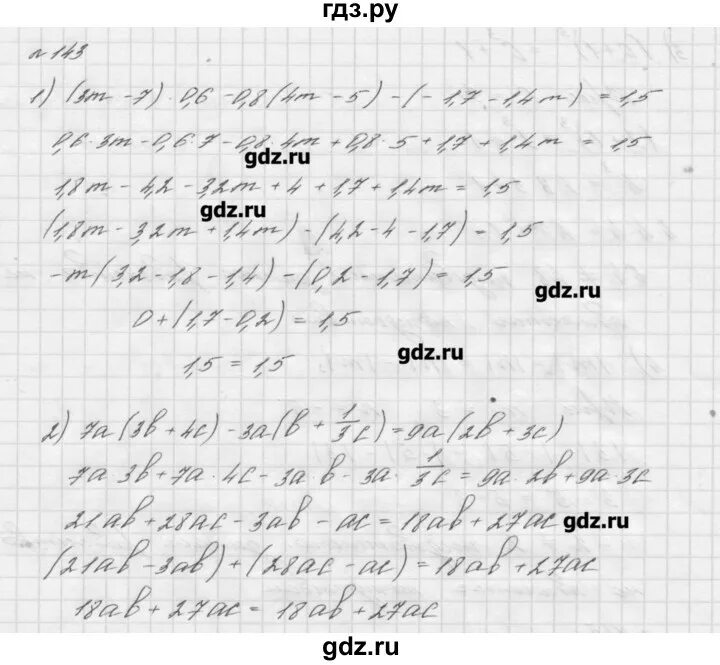 гдз.ру
№ 143
1) (3m - 7) · 0,6 - 0,8(4m - 5) - (-1,7 - 1,4m) = 1,5
0,6 · 3m - 0,6 · 7 - 0,8 · 4m + 0,8 · 5 + 1,7 + 1,4m = 1,5
gdz.ru
1,8m - 4,2 - 3,2m + 4 + 1,7 + 1,4m = 1,5
gdz.ru
(1,8m - 3,2m + 1,4m) - (4,2 - 4 - 1,7) = 1,5
-m(3,2 - 1,8 - 1,4) - (0,2 - 1,7) = 1,5
gdz.ru
0 + (1,7 - 0,2) = 1,5
gdz.ru
1,5 = 1,5
2) 7a(3b + 4c) - 3a(b + 1/3 c) = 9a(2b + 3c)
7a · 3b + 7a · 4c - 3a · b - 3a · 1/3 c = 9a · 2b + 9a · 3c
21ab + 28ac - 3ab - ac = 18ab + 27ac gdz.ru
(21ab - 3ab) + (28ac - ac) = 18ab + 27ac
18ab + 27ac = 18ab + 27ac
gdz.ru